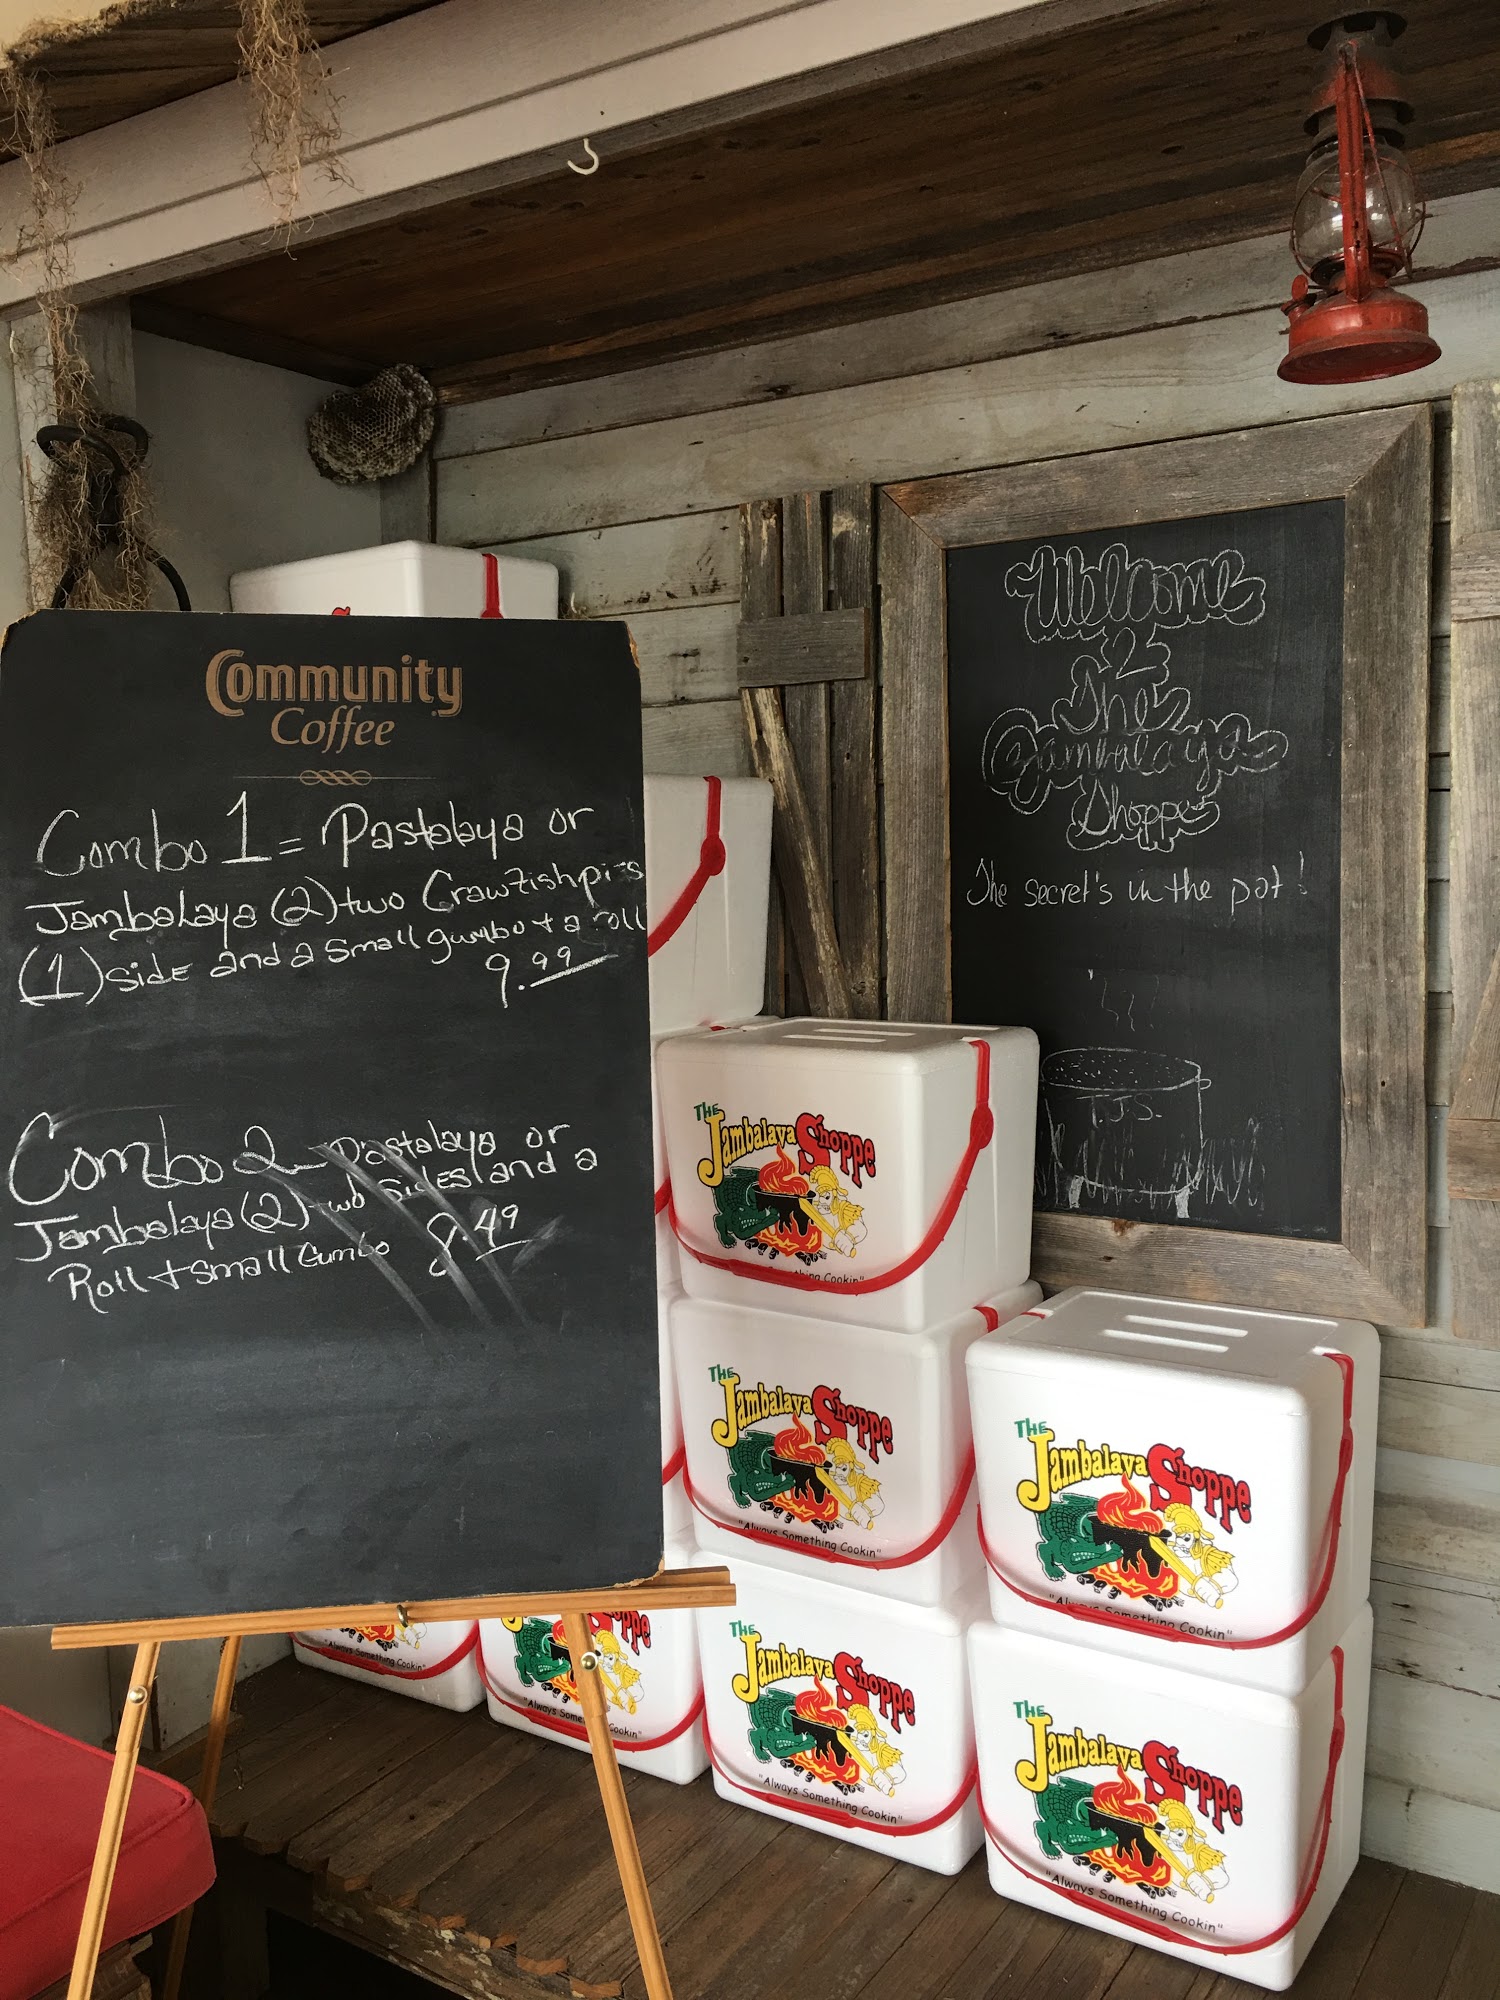 Community
Coffee
Combo 1 = Pastalaya or
Jambalaya (2) two Crawfish pies
(1) side and a small gumbo + a roll
9.99
Combo 2 Pastalaya or
Jambalaya (2) two sides and a
Roll + small Gumbo 8.49
Welcome
2
The
Jambalaya
Shoppe
The secret's in the pot!
T.J.S.
THE
Jambalaya Shoppe
thing Cookin"
THE
Jambalaya Shoppe
"Always Something Cookin"
THE
Jambalaya Shoppe
"Always Something Cookin"
"Always Something Cookin"
"Always Something Cookin"
THE
Jambalaya Shoppe
"Always Something Cookin"
THE
Jambalaya Shoppe
"Always Something Cookin"